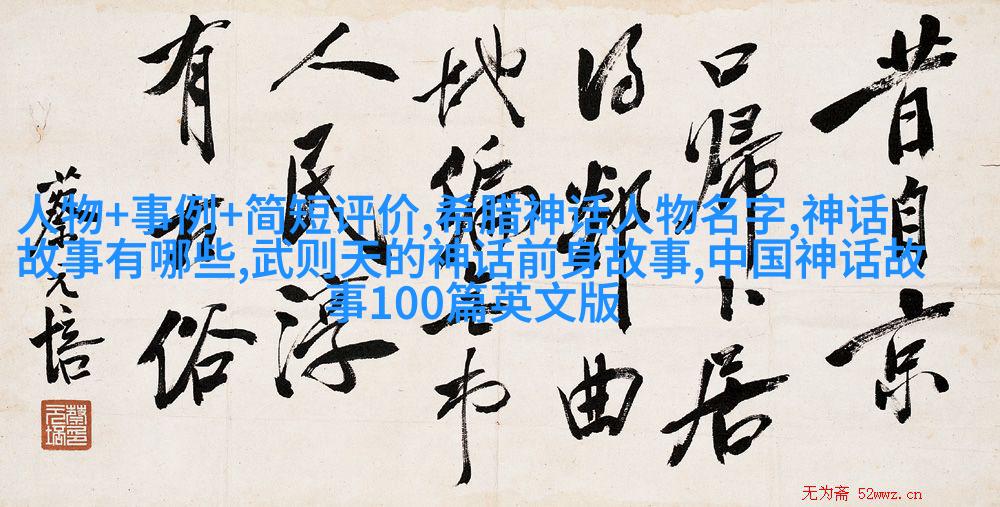 昔自京
口歸卜居
得曲
地偏市
人民淳
有俗
蔡元培
人物+事例+简短评价,希腊神话人物名字,神话
故事有哪些,武则天的神话前身故事,中国神话故
事100篇英文版
无为斋 52wwz.cn